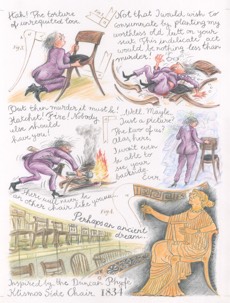 Hah! The torture
of unrequited love.
Fig 1
Not that I would wish to
consummate by planting my
worthless old butt on your
seat. This indelicate act
would be nothing less than
murder!
But then murder it must be!
Hatchet! Fire! Nobody
else should
have you!
Well. Maybe.
Just a picture?
The two of us?
Alas, here
I won't even
be able to
see your
backside
Ever.
There will never be
another chair like yours.
Perhaps an ancient
dream...
Inspired by the Duncan Phyfe
Klismos Side Chair, 1831